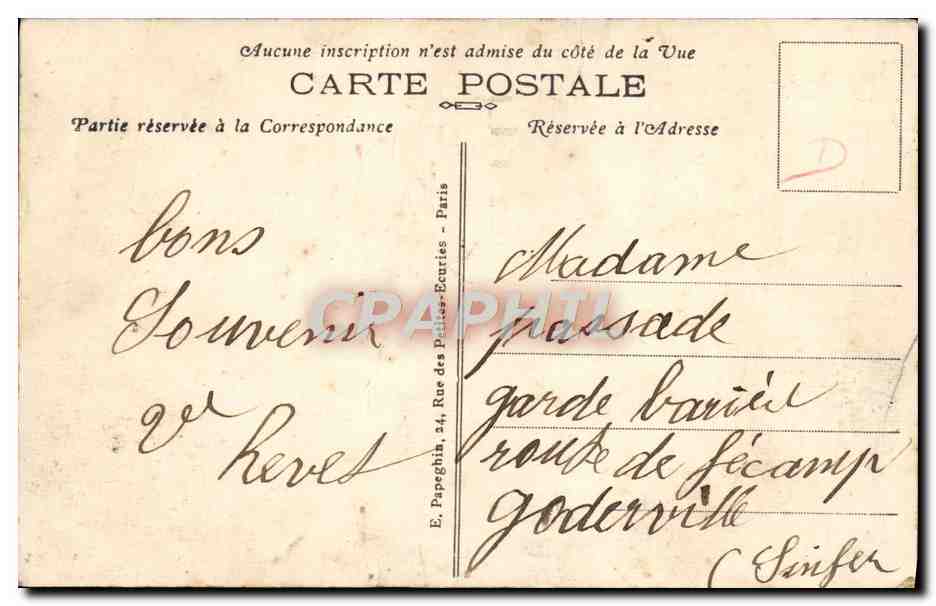 Aucune inscription n'est admise du côté de la Vue
CARTE POSTALE
Partie réservée à la Correspondance
Réservée à l'Adresse
D
bons
Souvenir
Ve
hevet
E. Papeghin, 24, Rue des Petites-Ecuries - Paris
CPAPHIL
Madame
passade
garde barière
route de fécamp
Goderville
(Sinfer